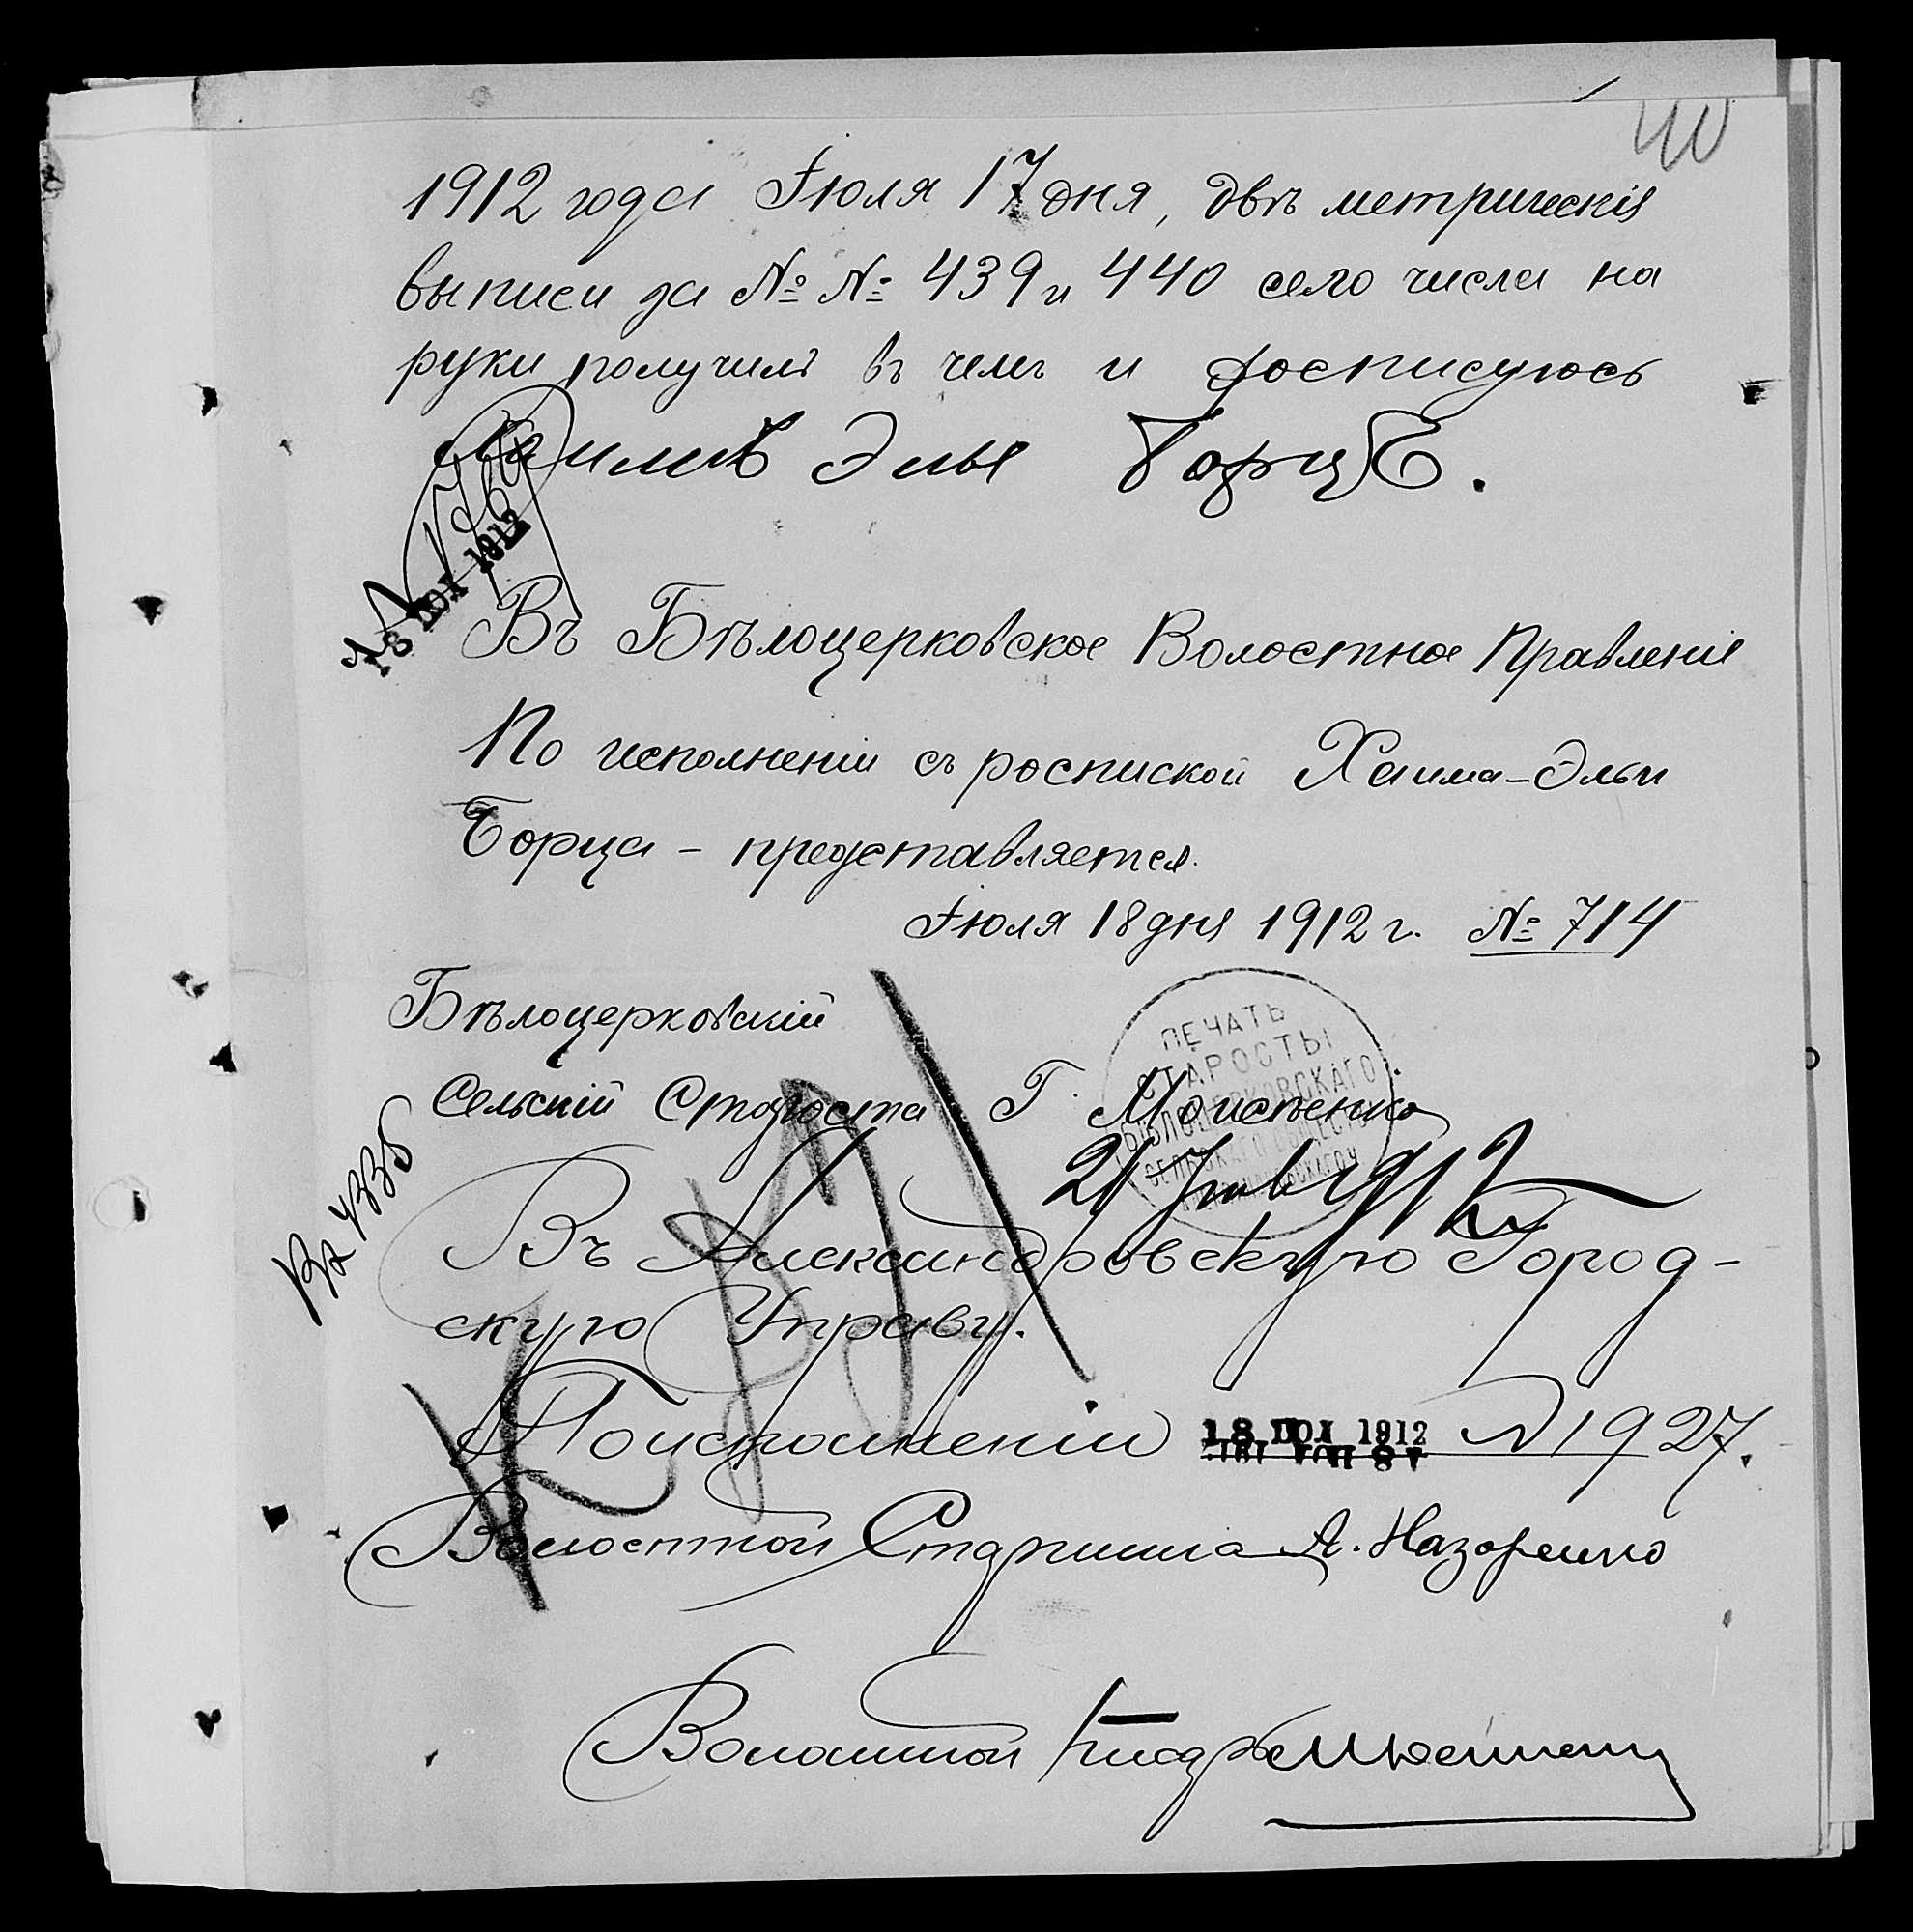 40
1912 года Іюля 17 дня, двѣ метрическія
выписи за №№ 439 и 440 сего числа на
руки получилъ въ чемъ и росписуюсь
Хаимъ Элья Борцъ.
18 ІЮЛ 1912
Въ Бѣлоцерковское Волостное Правленіе
По исполненіи съ роспиской Хаима-Эльи
Борца - представляется.
Іюля 18 дня 1912 г. № 714
Бѣлоцерковскій
Сельскій Староста Г. Моисеенко
ПЕЧАТЬ
СТАРОСТЫ
БѢЛОЦЕРКОВСКАГО
СЕЛЬСКАГО ОБЩЕСТВА
21 1912
Въ Александровскую Город-
скую Управу.
По исполненіи 18 ІЮЛ 1912 № 1927.
Волостной Старшина А. Назаренко
Волостной Писарь